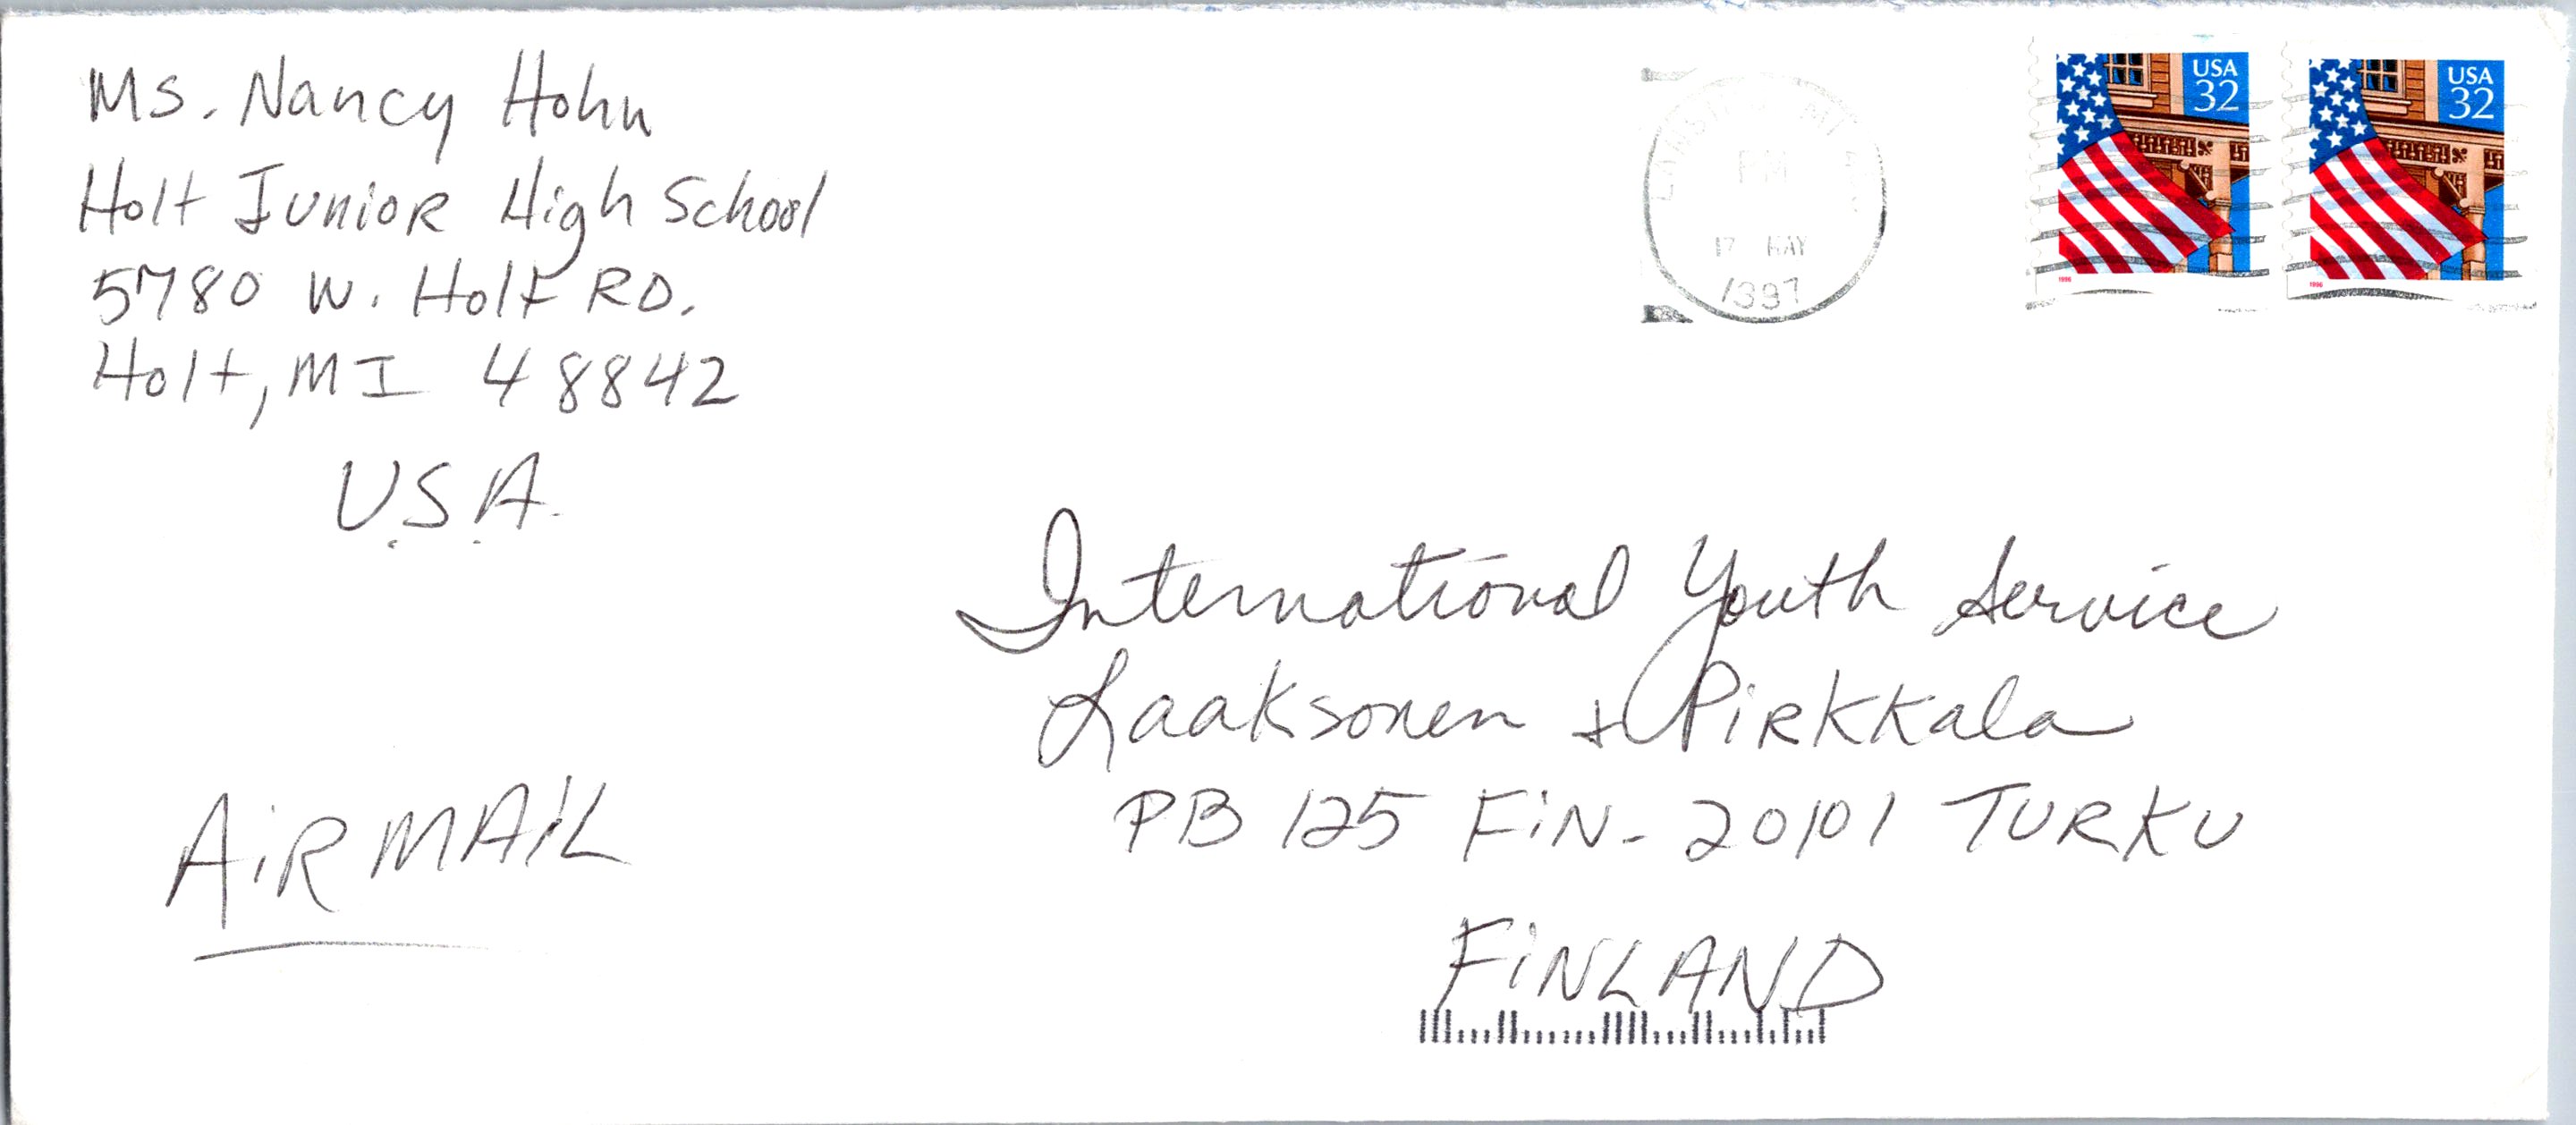 Ms. Nancy Hohn
Holt Junior High School
5780 W. Holt RD.
Holt, MI 48842
U.S.A.
AiRMAiL
PM
17 MAY
1997
USA
32
1996
USA
32
1996
International Youth Service
Laaksonen & Pirkkala
PB 125 FiN- 20101 TURKU
FiNLAND